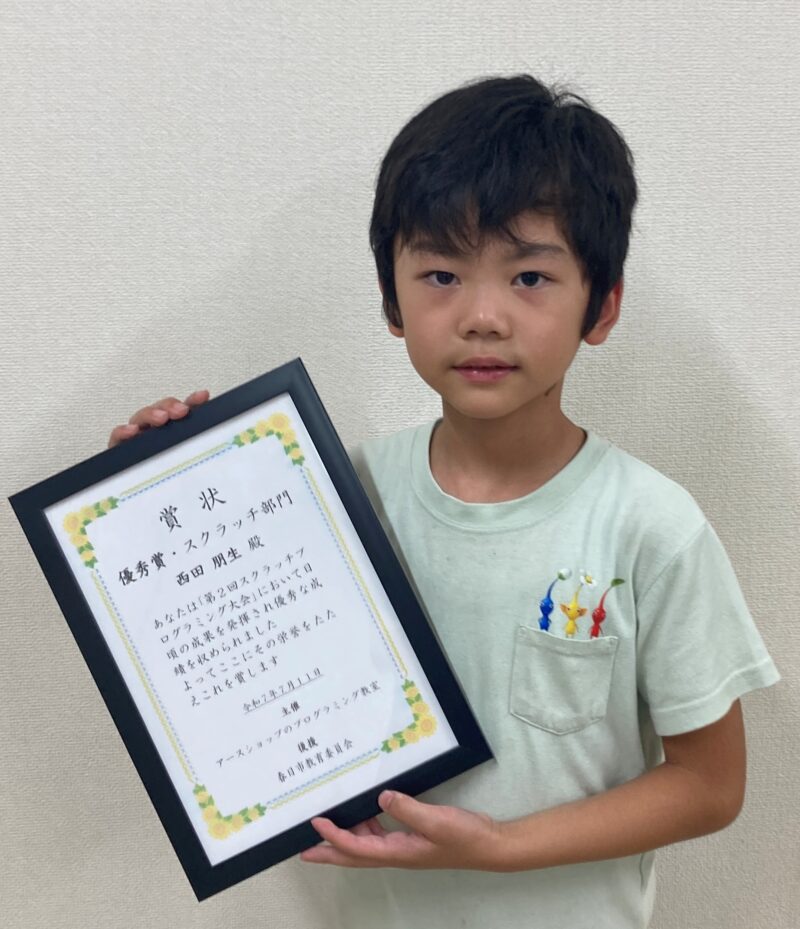 賞 状
優秀賞・スクラッチ部門
西田 朋生 殿
あなたは「第2回スクラッチプ
ログラミング大会」において日
頃の成果を発揮され優秀な成
績を収められました
よってここにその栄誉をたた
えこれを賞します
令和7年7月11日
主催
アースショップのプログラミング教室
後援
春日市教育委員会